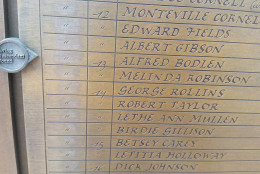 -12 MONTEVILLE CORNEL
" EDWARD FIELDS
" ALBERT GIBSON
-13 ALFRED BODLEN
" MELINDA ROBINSON
-14 GEORGE ROLLINS
" ROBERT TAYLOR
" LETHE ANN MULLEN
" BIRDIE GILLISON
-15 BETSEY CAREY
" LETITIA HOLLOWAY
DICK JOHNSON